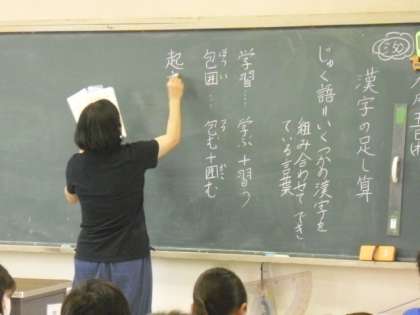 漢字の足し算
じゅく語=いくつかの漢字を
組み合わせてでき
ている言葉
学習… 学ぶ+習う
包囲… 包む+囲む
ほうい
起